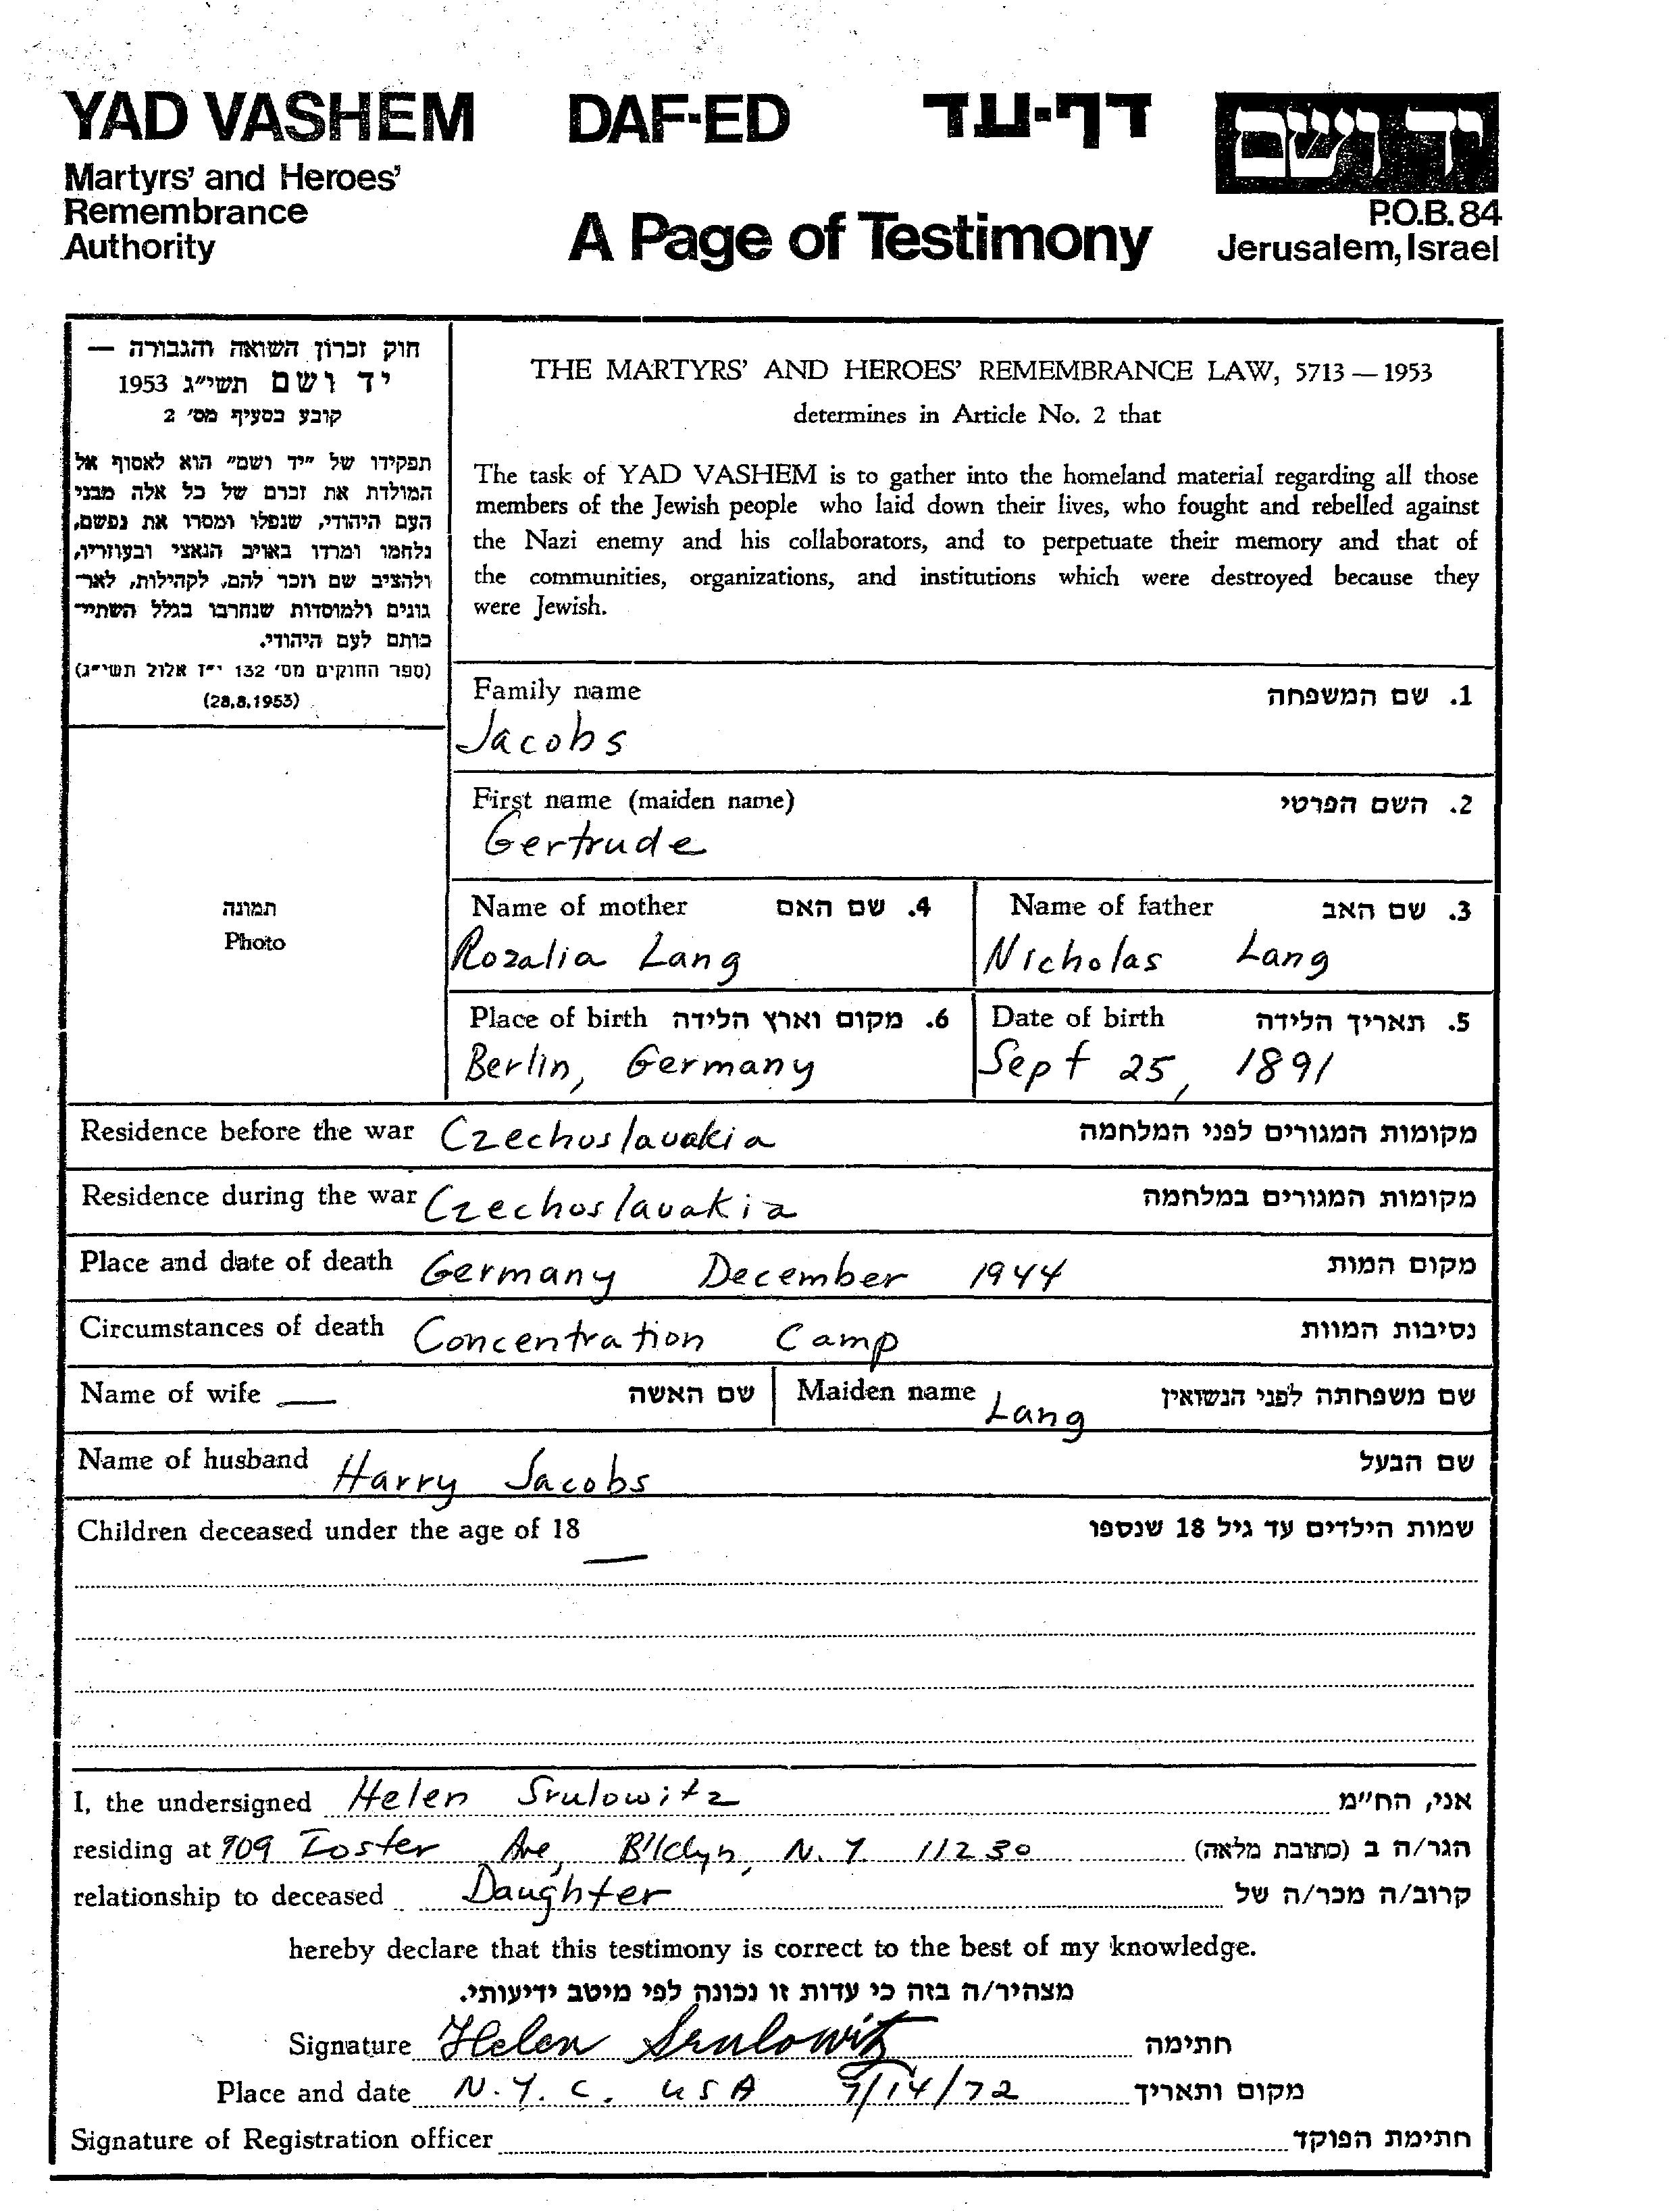 YAD VASHEM DAF-ED דף-עד יד ושם
Martyrs' and Heroes'
Remembrance
Authority
A Page of Testimony
P.O.B. 84
Jerusalem, Israel
חוק זכרון השואה והגבורה —
יד ושם תשי"ג 1953
קובע בסעיף מס' 2
תפקידו של "יד ושם" הוא לאסוף אל
המולדת את זכרם של כל אלה מבני
העם היהודי, שנפלו ומסרו את נפשם,
נלחמו ומרדו באויב הנאצי ובעוזריו,
ולהציב שם וזכר להם, לקהילות, לאר־
גונים ולמוסדות שנחרבו בגלל השתיי־
כותם לעם היהודי.
(ספר החוקים מס' 132 י"ז אלול תשי"ג)
(28.8.1953)
THE MARTYRS' AND HEROES' REMEMBRANCE LAW, 5713 — 1953
determines in Article No. 2 that
The task of YAD VASHEM is to gather into the homeland material regarding all those
members of the Jewish people who laid down their lives, who fought and rebelled against
the Nazi enemy and his collaborators, and to perpetuate their memory and that of
the communities, organizations, and institutions which were destroyed because they
were Jewish.
Family name 1. שם המשפחה
Jacobs
First name (maiden name) 2. השם הפרטי
Gertrude
תמונה
Photo
Name of mother 4. שם האם Name of father 3. שם האב
Rozalia Lang Nicholas Lang
Place of birth 6. מקום וארץ הלידה Date of birth 5. תאריך הלידה
Berlin, Germany Sept 25, 1891
Residence before the war Czechoslavakia מקומות המגורים לפני המלחמה
Residence during the war Czechoslavakia מקומות המגורים במלחמה
Place and date of death Germany December 1944 מקום המות
Circumstances of death Concentration Camp נסיבות המוות
Name of wife — שם האשה Maiden name Lang שם משפחתה לפני הנשואין
Name of husband Harry Jacobs שם הבעל
Children deceased under the age of 18 — שמות הילדים עד גיל 18 שנספו
I, the undersigned Helen Srulowitz אני, הח"מ
residing at 909 Foster Ave, B'klyn, N.Y. 11230 הגר/ה ב (כתובת מלאה)
relationship to deceased Daughter קרוב/ה מכר/ה של
hereby declare that this testimony is correct to the best of my knowledge.
מצהיר/ה בזה כי עדות זו נכונה לפי מיטב ידיעותי.
Signature Helen Srulowitz חתימה
Place and date N.Y.C. USA 9/14/72 מקום ותאריך
Signature of Registration officer חתימת הפוקד